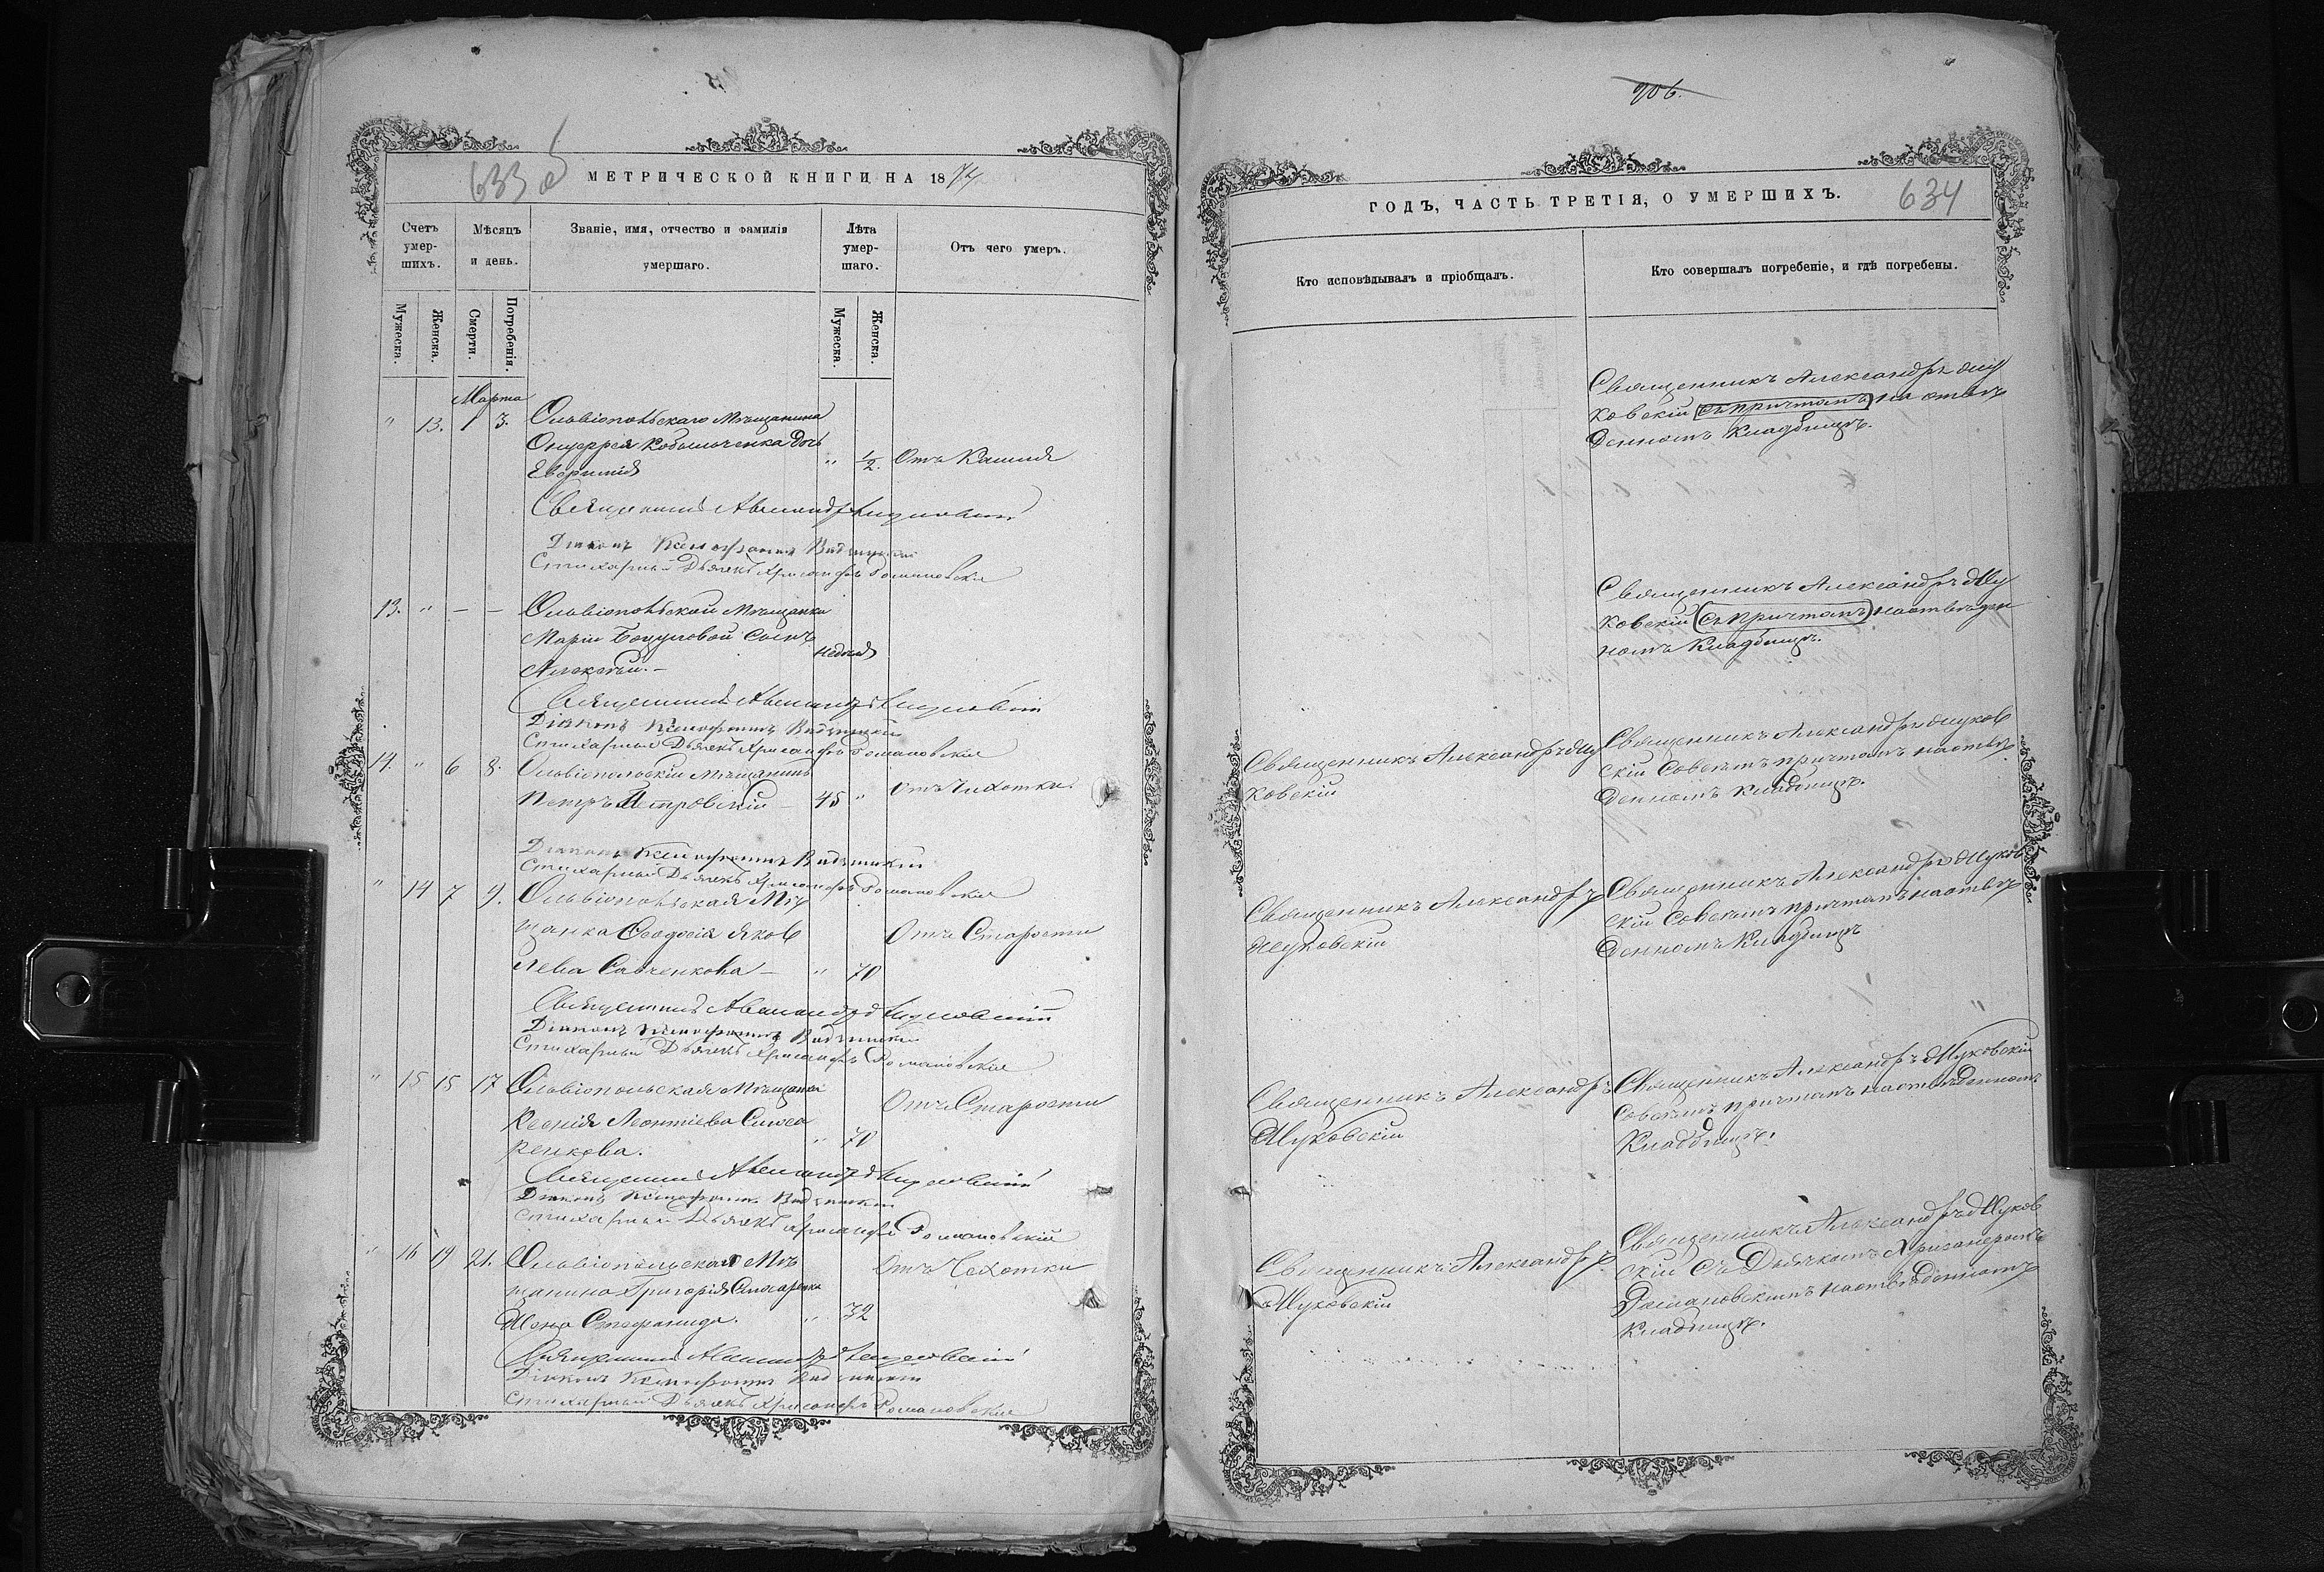 633 об
МЕТРИЧЕСКОЙ КНИГИ НА 1874
Счетъ умершихъ.
Мѣсяцъ и день.
Званіе, имя, отчество и фамилія умершаго.
Лѣта умершаго.
Отъ чего умеръ.
Мужеска.
Женска.
Смерти.
Погребенія.
Мужеска.
Женска.
Марта
" 13. 1 3. Ольвіопольскаго Мѣщанина
Онуфрія дочь
Евфимія " 1/2. Отъ Кашля
Священникъ Александръ
Діаконъ Ксенофонтъ
Стихарный Дьячекъ Хрисанфъ Романовскій
13. " – – Ольвіопольской Мѣщанки
Маріи Сынъ
Алексѣй. – недѣля
Священникъ Александръ
Діаконъ Ксенофонтъ
Стихарный Дьячекъ Хрисанфъ Романовскій
14. " 6 8. Ольвіопольскій Мѣщанинъ
Петръ Петровскій 45 " Отъ Чахотки
Діаконъ Ксенофонтъ
Стихарный Дьячекъ Хрисанфъ Романовскій
" 14 7 9. Ольвіопольская Мѣ
щанка Ѳеодосія Яков
лева Савченкова – " 70 Отъ Старости
Священникъ Александръ
Діаконъ Ксенофонтъ
Стихарный Дьячекъ Хрисанфъ Романовскій
" 15 15 17 Ольвіопольская Мѣщанка
Ксенія Леонтіева
ренкова. " 70 Отъ Старости
Священникъ Александръ
Діаконъ Ксенофонтъ
Стихарный Дьячекъ Хрисанфъ Романовскій
" 16 19 21. Ольвіопольская Мѣ
щанина Григорія
Жена Стефанида. " 32 Отъ Чахотки
Священникъ Александръ
Діаконъ Ксенофонтъ
Стихарный Дьячекъ Хрисанфъ Романовскій
906.
ГОДЪ, ЧАСТЬ ТРЕТІЯ, О УМЕРШИХЪ.
634
Кто исповѣдывалъ и пріобщалъ.
Кто совершалъ погребеніе, и гдѣ погребены.
Священникъ Александръ
ковскій съ причтомъ на отве
денномъ Кладбищѣ.
Священникъ Александръ
ковскій съ причтомъ на отведен
номъ Кладбищѣ.
Священникъ Александръ
ковскій
Священникъ Александръ
скій со всѣмъ причтомъ на отве
денномъ Кладбищѣ.
Священникъ Александръ
Священникъ Александръ
скій со всѣмъ причтомъ на отве
денномъ Кладбищѣ
Священникъ Александръ
Священникъ Александръ
со всѣмъ причтомъ на отведенномъ
Кладбищѣ.
Священникъ Александръ
Священникъ Александръ
скій съ Дьячкомъ Хрисанфомъ
Романовскимъ на отведенномъ
Кладбищѣ.